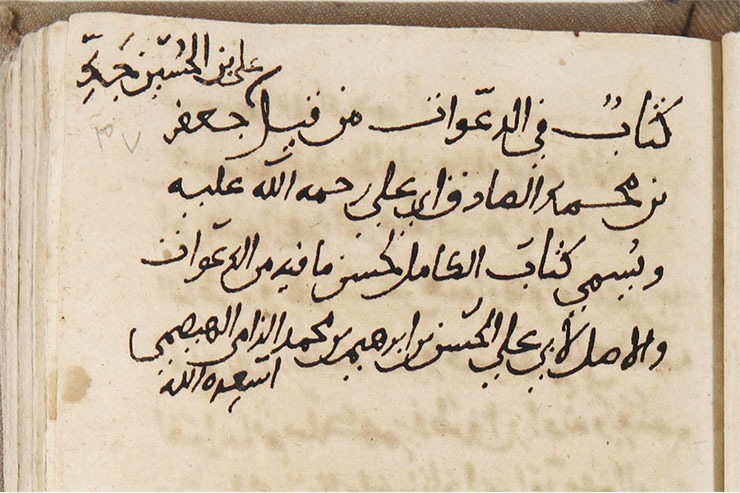 علي بن الحسين جده
كتاب في الدعوات من قبل جعفر
بن محمد الصادق ابن علي رحمه الله عليه
ويسمى كتاب الكامل لحسن ما فيه من الدعوات
والاصل لأبي علي الحسن بن ابرهيم بن محمد الهيصمي
اسعده الله